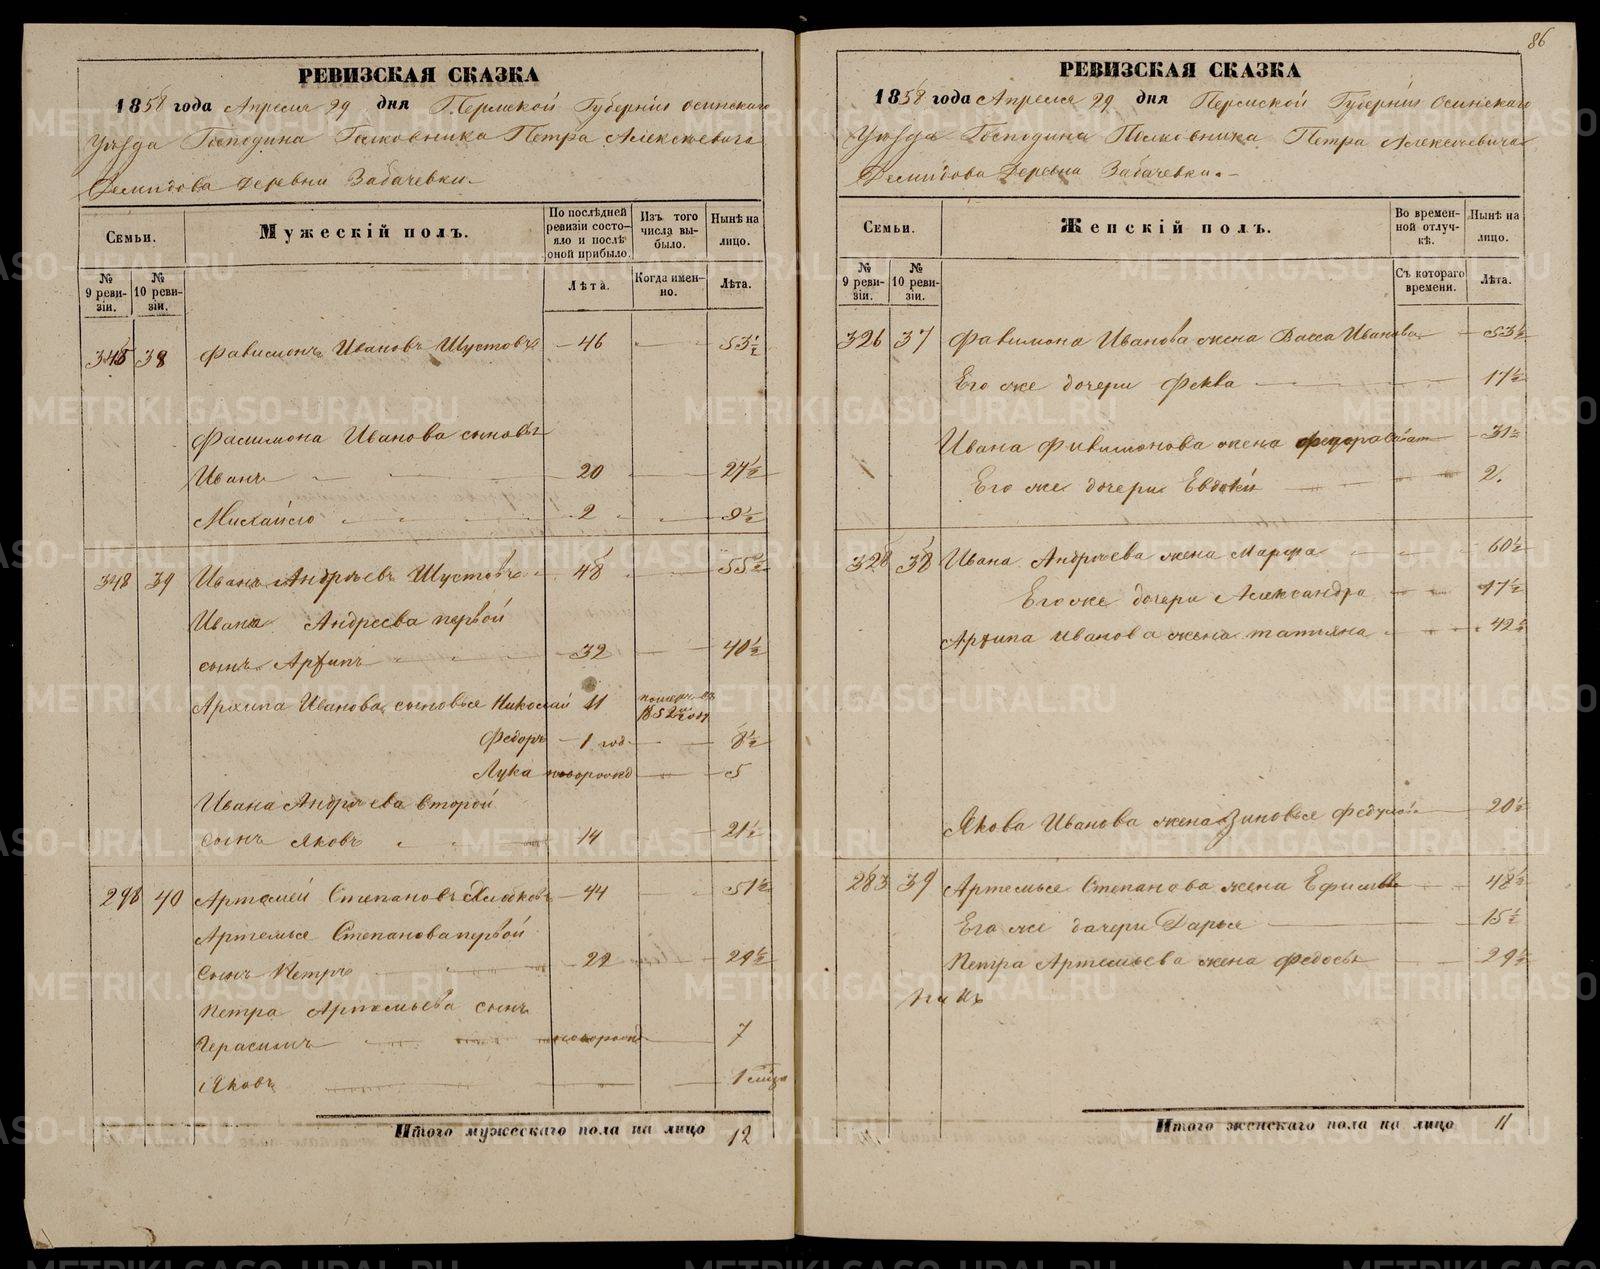 РЕВИЗСКАЯ СКАЗКА
1858 года Апреля 29 дня Пермской Губернiи Осинскаго
Уезда Господина Полковника Петра Алексеевича
Демидова Деревни Забачевки.
Семьи.
Мужескiй полъ.
По послѣдней ревизiи состояло и послѣ оной прибыло.
Изъ того числа выбыло.
Нынѣ на лицо.
№ 9 ревизiи.
№ 10 ревизiи.
Лѣта.
Когда именно.
Лѣта.
345 38 Филимонъ Ивановъ Шустовъ 46 53½
Филимона Иванова сыновья
Иванъ 20 27½
Михайло 2 9½
348 39 Иванъ Андреевъ Шустовъ 48 55½
Ивана Андреева первой
сынъ Архипъ 32 40½
Архипа Иванова сыновья Николай 11 1852 году
Федоръ 1 год. 8½
Лука новорожд 5
Ивана Андреева второй
сынъ Яковъ 14 21½
298 40 Артемей Степановъ 44 51½
Артемья Степанова первой
сынъ Петръ 22 29½
Петра Артемьева сынъ
Герасимъ новорожд 7
Яковъ 1
Итого мужескаго пола на лицо 12
86
РЕВИЗСКАЯ СКАЗКА
1858 года Апреля 29 дня Пермской Губернiи Осинскаго
Уезда Господина Полковника Петра Алексеевича
Демидова Деревни Забачевки.
Семьи.
Женскiй полъ.
Во временной отлучкѣ.
Нынѣ на лицо.
№ 9 ревизiи.
№ 10 ревизiи.
Съ котораго времени.
Лѣта.
326 37 Филимона Иванова жена Васса Иванова 53½
Его же дочери Фекла 17½
Ивана Филимонова жена 31½
Его же дочери Евдокiя 2.
328 38 Ивана Андреева жена Марфа 60½
Его же дочери Александра 17½
Архипа Иванова жена татьяна 42½
Якова Иванова жена Зиновья 20½
283 39 Артемья Степанова жена 48½
Его же дочери Дарья 15½
Петра Артемьева жена Федосья 29½
Итого женскаго пола на лицо 11
METRIKI.GASO-URAL.RU